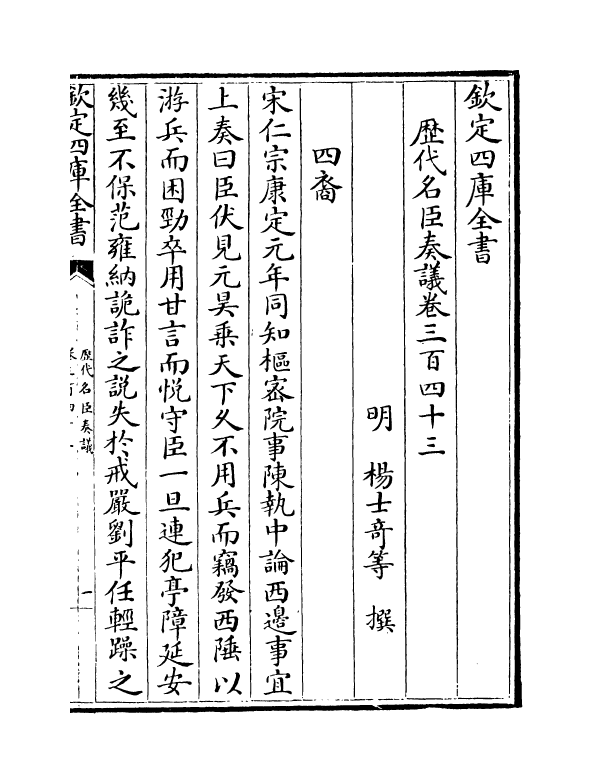 欽定四庫全書
歴代名臣奏議卷三百四十三
明　楊士竒等　撰
四裔
宋仁宗康定元年同知樞宻院事陳執中論西邊事宜
上奏曰臣伏見元昊乗天下乆不用兵而竊發西陲以
游兵而困勁卒用甘言而悦守臣一旦連犯亭障延安
幾至不保范雍納詭詐之説失於戒嚴劉平任輕躁之
欽定四庫全書
歴代名臣奏議
一